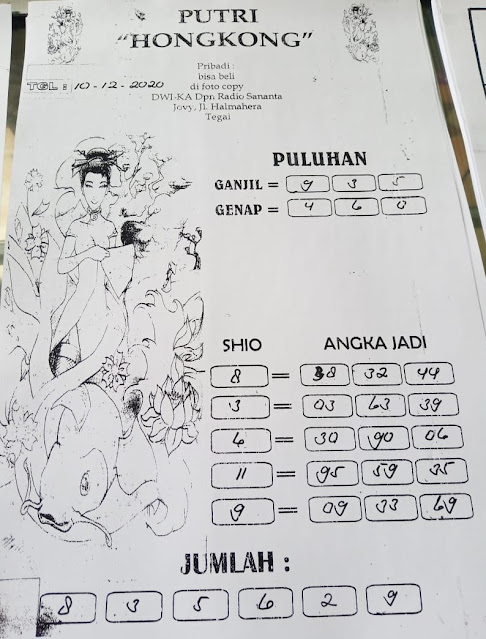 PUTRI
"HONGKONG"
Pribadi :
bisa beli
di foto copy
DWI-KA Dpn Radio Sananta
Jovy, Jl. Halmahera
Tegal
TGL : 10-12-2020
PULUHAN
GANJIL = 9 3 5
GENAP = 4 6 0
SHIO ANGKA JADI
8 = 38 32 44
3 = 03 63 39
6 = 30 90 06
11 = 95 59 35
9 = 09 33 69
JUMLAH :
8 3 5 6 2 9